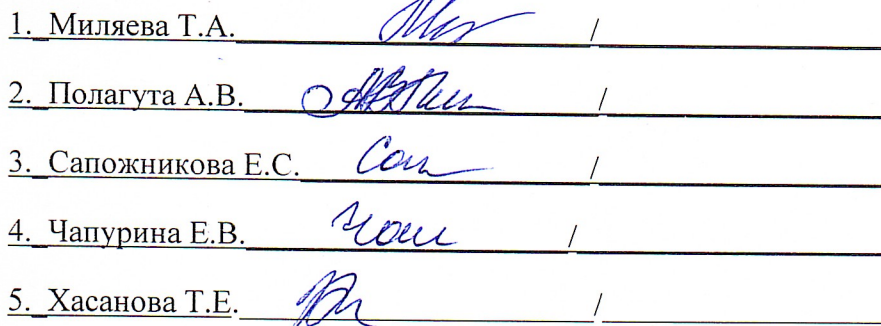 1. Миляева Т.А. /
2. Полагута А.В. /
3. Сапожникова Е.С. /
4. Чапурина Е.В. /
5. Хасанова Т.Е. /